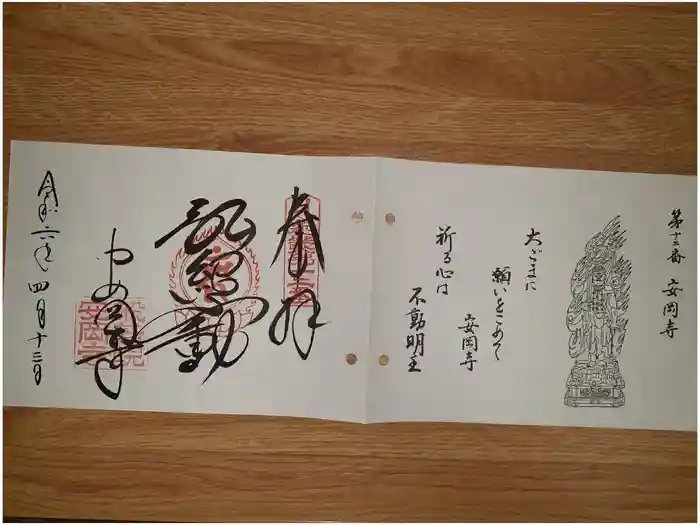 第十三番 安岡寺
大ごまに
願いをこめて
安岡寺
祈る心は
不動明王
奉拝
安岡寺
令和六年四月十三日